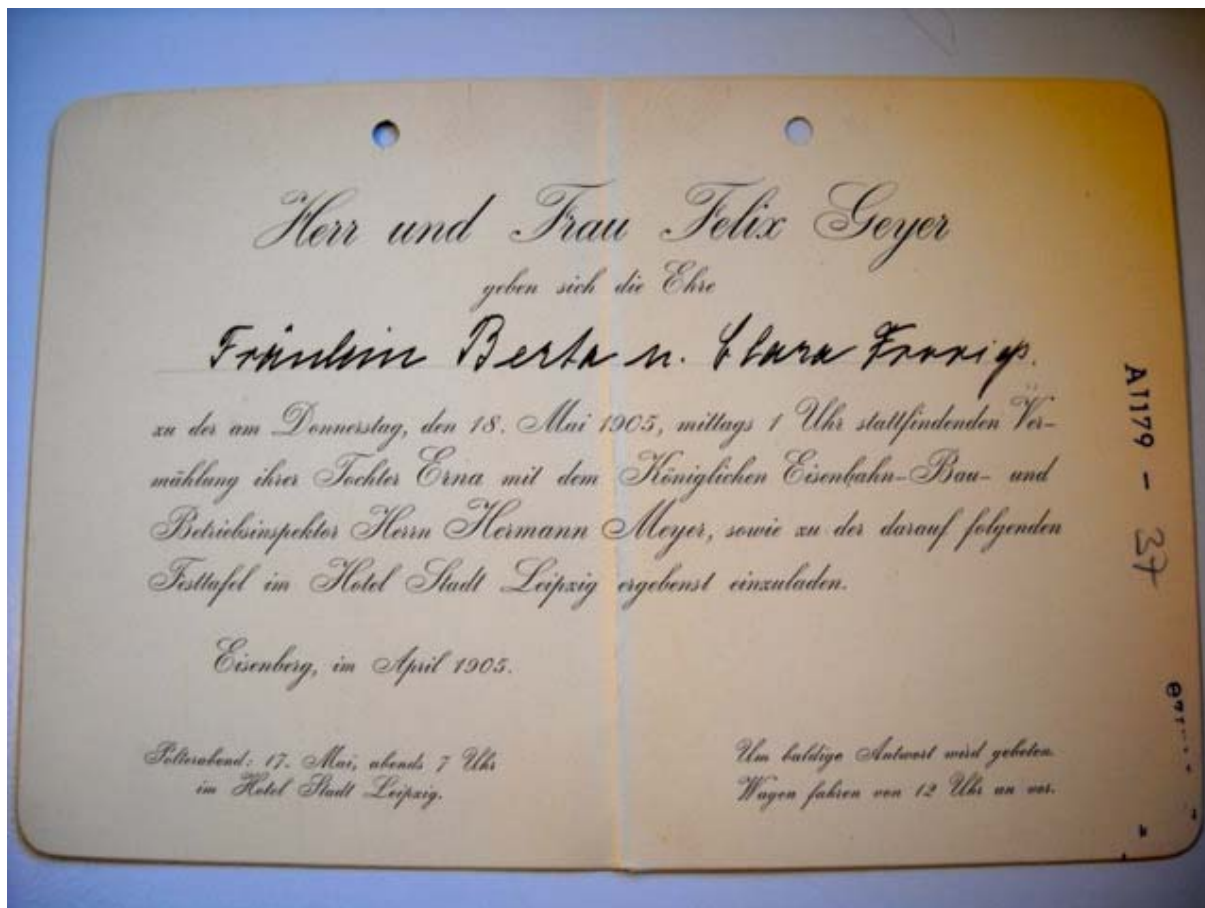 Herr und Frau Felix Geyer
geben sich die Ehre
Fräulein Berta u. Clara
zu der am Donnerstag, den 18. Mai 1905, mittags 1 Uhr stattfindenden Ver-
mählung ihrer Tochter Erna mit dem Königlichen Eisenbahn-Bau- und
Betriebsinspektor Herrn Hermann Meyer, sowie zu der darauf folgenden
Festtafel im Hotel Stadt Leipzig ergebenst einzuladen.
Eisenberg, im April 1905.
Polterabend: 17. Mai, abends 7 Uhr
im Hotel Stadt Leipzig.
Um baldige Antwort wird gebeten.
Wagen fahren von 12 Uhr an vor.
A1179 - 37